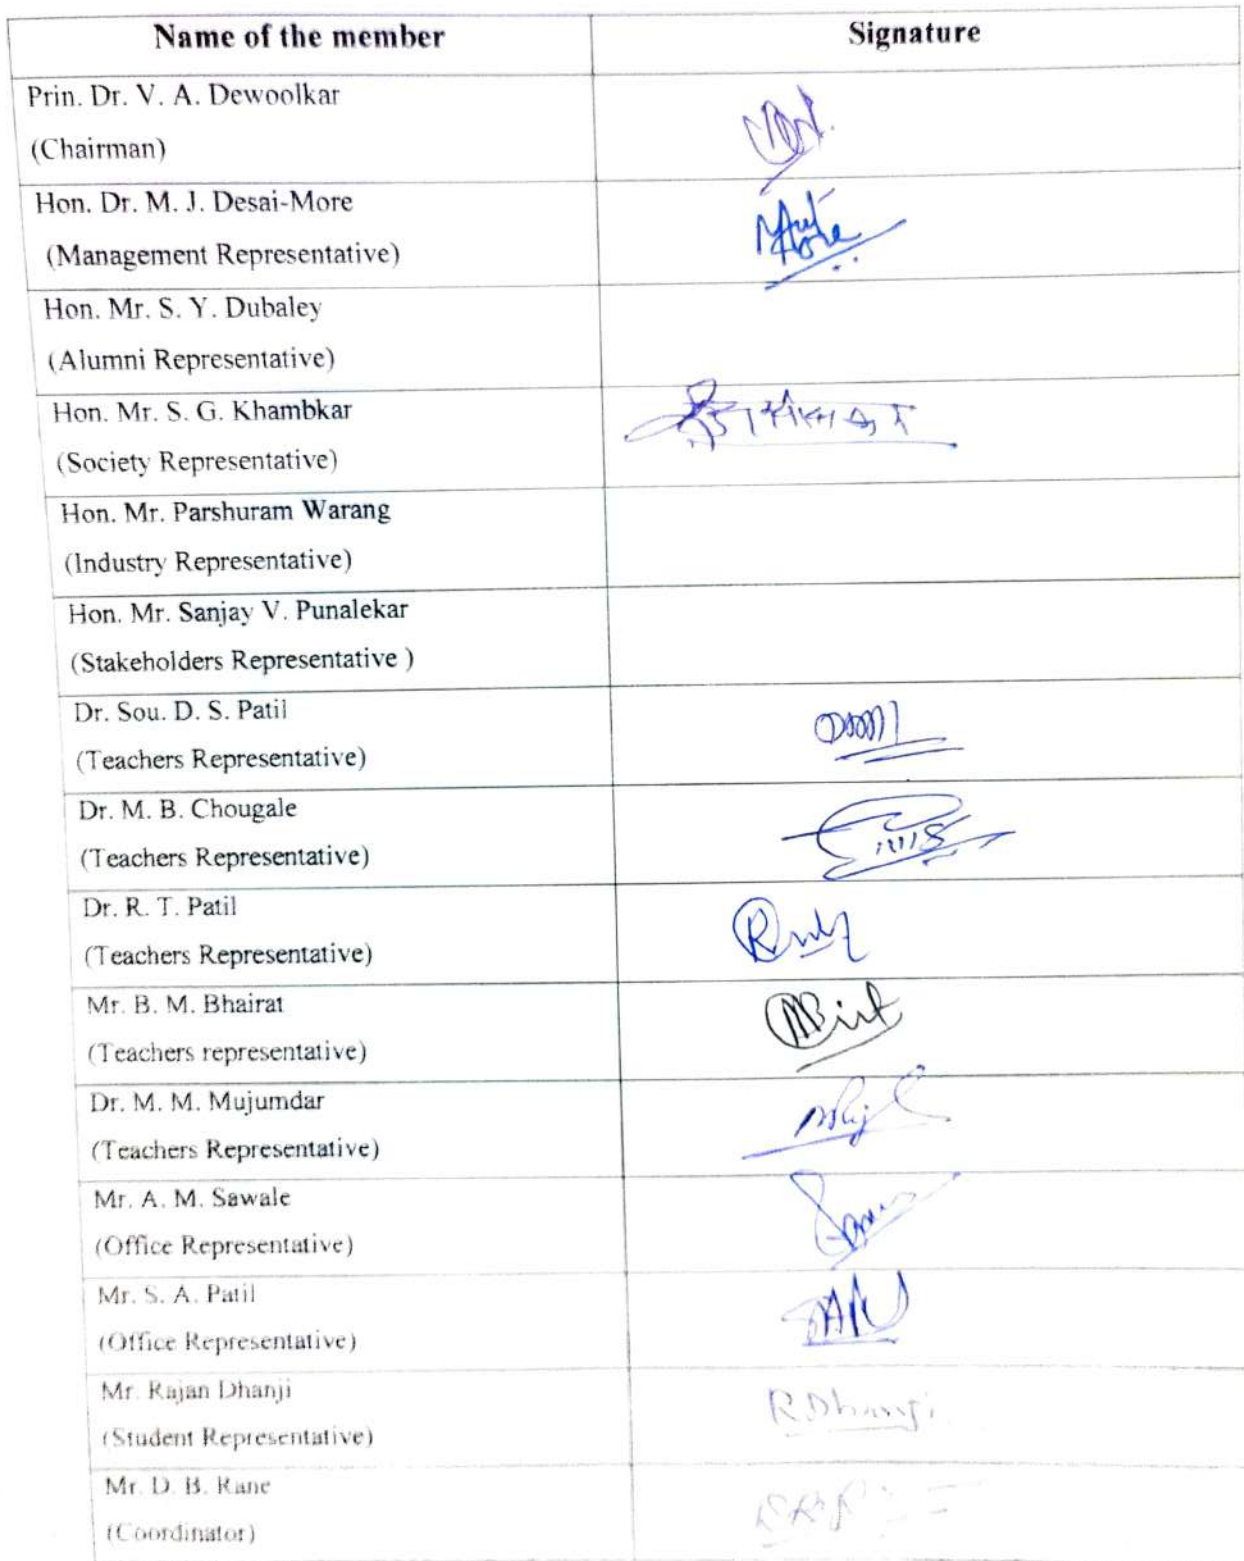 Name of the member Signature
Prin. Dr. V. A. Dewoolkar
(Chairman)
Hon. Dr. M. J. Desai-More
(Management Representative)
Hon. Mr. S. Y. Dubaley
(Alumni Representative)
Hon. Mr. S. G. Khambkar
(Society Representative)
Hon. Mr. Parshuram Warang
(Industry Representative)
Hon. Mr. Sanjay V. Punalekar
(Stakeholders Representative )
Dr. Sou. D. S. Patil
(Teachers Representative)
Dr. M. B. Chougale
(Teachers Representative)
Dr. R. T. Patil
(Teachers Representative)
Mr. B. M. Bhairat
(Teachers representative)
Dr. M. M. Mujumdar
(Teachers Representative)
Mr. A. M. Sawale
(Office Representative)
Mr. S. A. Patil
(Office Representative)
Mr. Rajan Dhanji
R. Dhanji
(Student Representative)
Mr. D. B. Rane
(Coordinator)